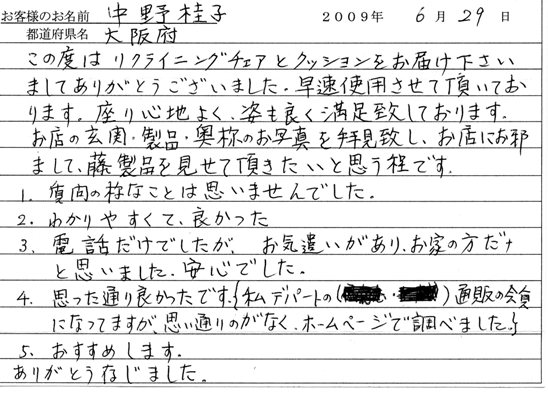 お客様のお名前 中野桂子 2009年 6月 29日
都道府県名 大阪府
この度はリクライニングチェアとクッションをお届け下さい
ましてありがとうございました。早速使用させて頂いてお
ります。座り心地よく、姿も良く満足致しております。
お店の玄関・製品・奥称のお写真を手見致し、お店にお邪
まして、藤製品を見せて頂きたいと思う程です。
1. 質問の様なことは思いませんでした。
2. わかりやすくて、良かった
3. 電話だけでしたが、お気遣いがあり、お家の方だナ
と思いました。安心でした。
4. 思った通り良かったです。{私デパートの( ・ )通販の会員
になってますが、思い通りのがなく、ホームページで調べました。}
5. おすすめします。
ありがとうなじました。